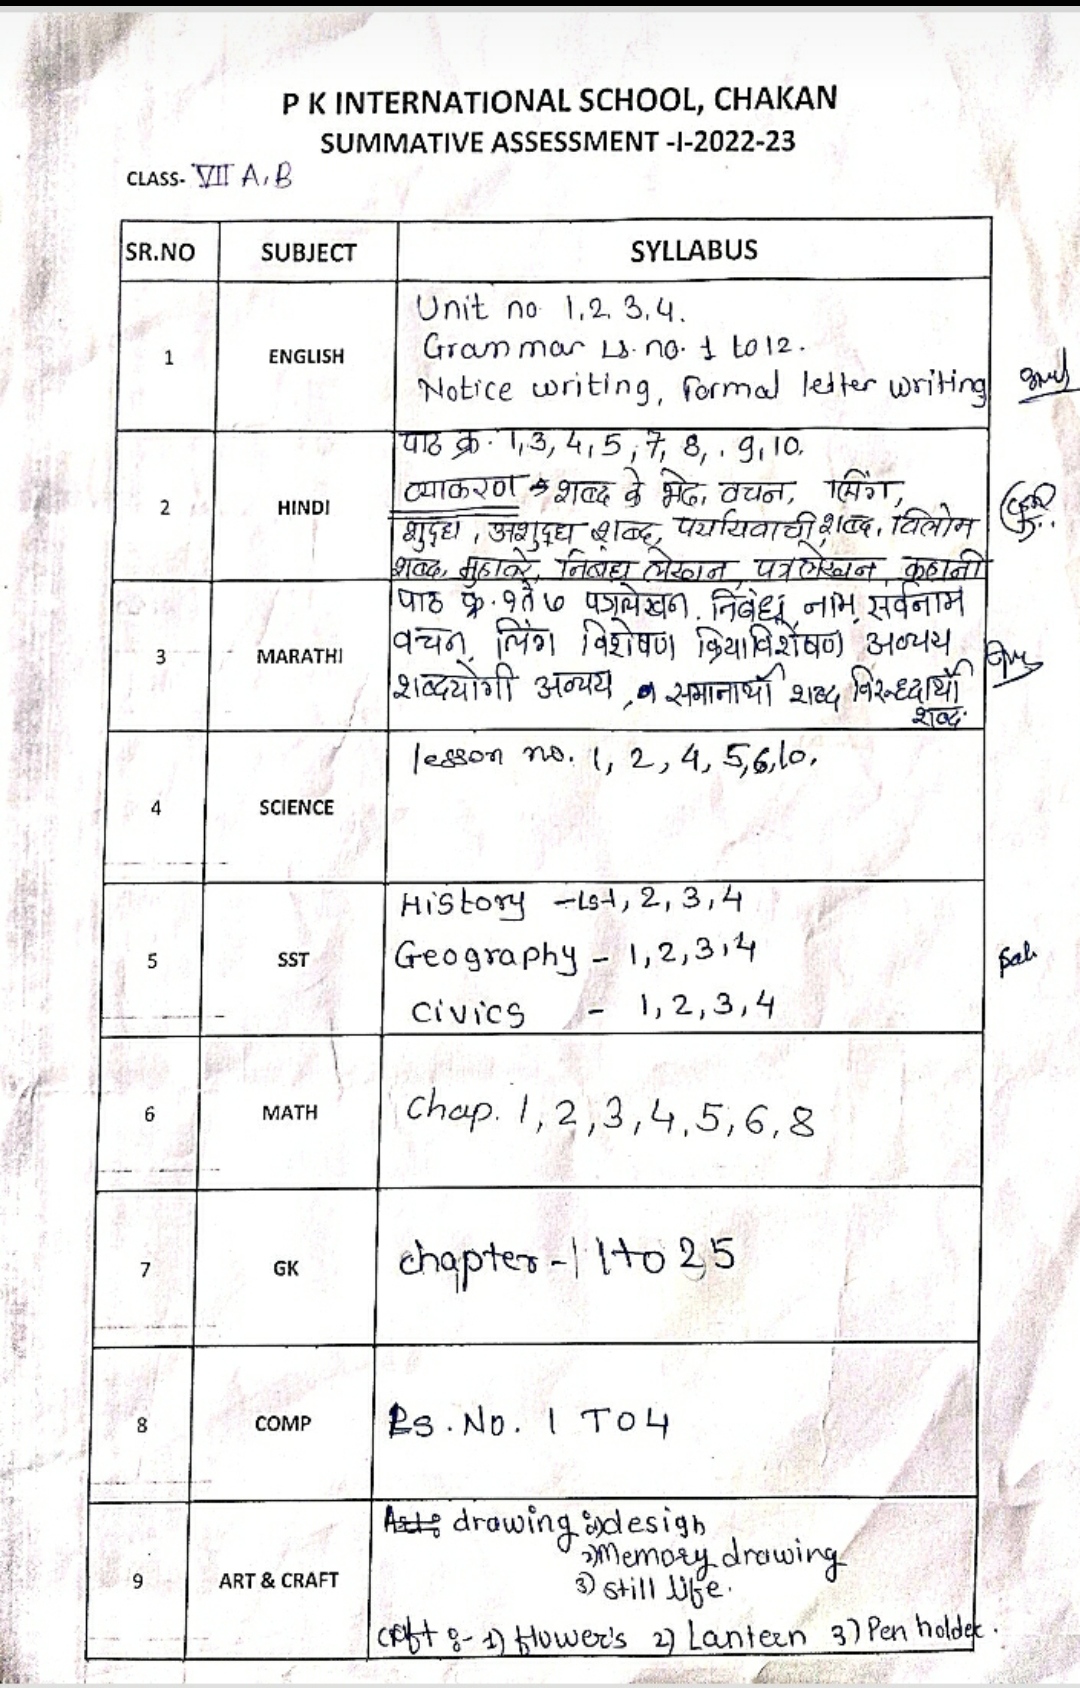 P K INTERNATIONAL SCHOOL, CHAKAN
SUMMATIVE ASSESSMENT -I-2022-23
CLASS- VII A, B
SR.NO SUBJECT SYLLABUS
1 ENGLISH
Unit no. 1, 2, 3, 4.
Grammar Ls. no. 1 to 12.
Notice writing, Formal letter writing
2 HINDI
पाठ क्र. 1, 3, 4, 5, 7, 8, . 9, 10.
व्याकरण → शब्द के भेद, वचन, लिंग,
शुद्ध, अशुद्ध शब्द, पर्यायवाची शब्द, विलोम
शब्द, मुहावरे, निबंध लेखन, पत्रलेखन, कहानी
3 MARATHI
पाठ क्र. १ ते ७ पत्रलेखन. निबंध, नाम, सर्वनाम
वचन, लिंग विशेषण क्रियाविशेषण अव्यय
शब्दयोगी अव्यय, समानार्थी शब्द विरुध्दार्थी
शब्द.
4 SCIENCE
lesson no. 1, 2, 4, 5, 6, 10.
5 SST
History - Ls 1, 2, 3, 4
Geography - 1, 2, 3, 4
Civics - 1, 2, 3, 4
6 MATH
Chap. 1, 2, 3, 4, 5, 6, 8
7 GK
chapter - 1 to 25
8 COMP
Ls. No. 1 TO 4
9 ART & CRAFT
drawing 1) design
2) Memory drawing
3) still life.
Craft :- 1) flower's 2) Lantern 3) Pen holder.